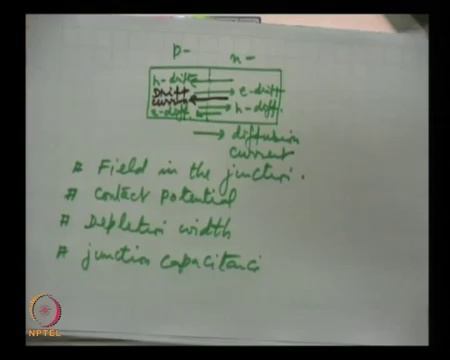 p- n-
h-drift
Drift e-drift
Current h-diff.
e-diff.
diffusion
current
# Field in the junction.
# Contact potential
# Depletion width
# junction capacitance
NPTEL